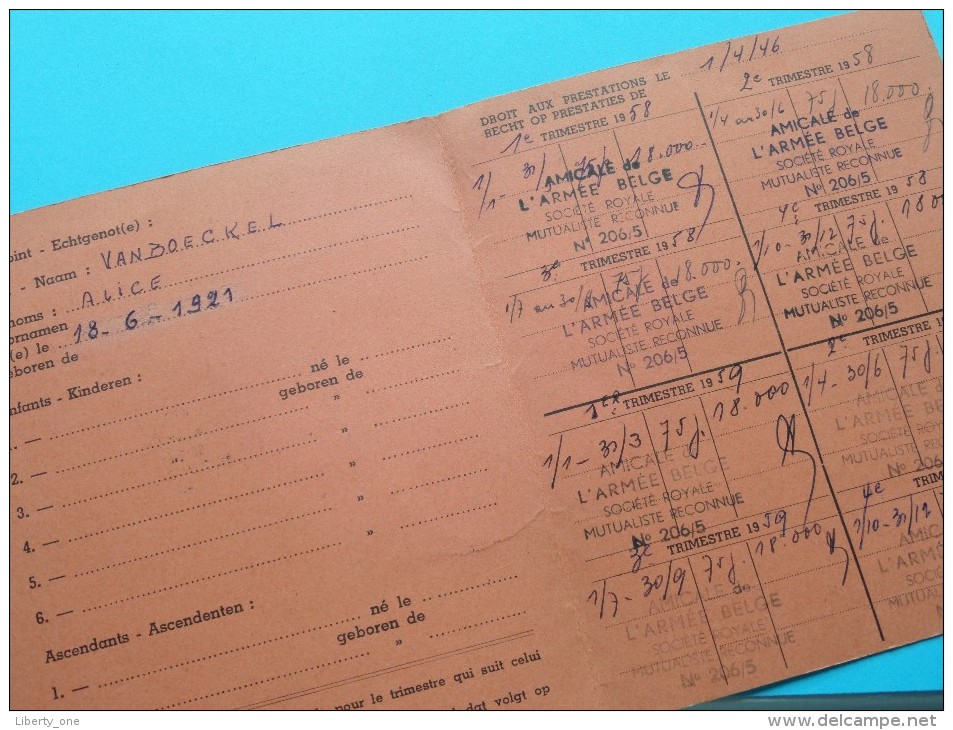 oint - Echtgenot(e) :
- Naam : VANBOECKEL
noms : ALICE
ornamen
(e) le 18-6-1921
boren de
nfants - Kinderen :
né le
geboren de
1. —
2. — »
3. — »
4. — »
5. — »
6. — »
Ascendants - Ascendenten :
né le
geboren de
1. — »
pour le trimestre qui suit celui
dat volgt op
DROIT AUX PRESTATIONS LE 1/4/46
RECHT OP PRESTATIES DE
1e TRIMESTRE 1958
1/1 - 18.000
AMICALE de
L'ARMÉE BELGE
SOCIÉTÉ ROYALE
MUTUALISTE RECONNUE
No 206/5
2e TRIMESTRE 1958
1/4 au 30/6 75j 18.000.
AMICALE de
L'ARMÉE BELGE
SOCIÉTÉ ROYALE
MUTUALISTE RECONNUE
No 206/5
3e TRIMESTRE 1958
1/7 au 30/ 75 18.000
AMICALE de
L'ARMÉE BELGE
SOCIÉTÉ ROYALE
MUTUALISTE RECONNUE
No 206/5
4e 58
1/10-30/12 75j. 1800
AMICALE de
L'ARMÉE BELGE
SOCIÉTÉ ROYALE
MUTUALISTE RECONNUE
No 206/5
1er TRIMESTRE 1959
1/1-30/3 75j. 18.000
AMICALE de
L'ARMÉE BELGE
SOCIÉTÉ ROYALE
MUTUALISTE RECONNUE
No 206/5
2e TRIMESTRE 19
1/4-30/6 75j.
AMICALE d
L'ARMÉE BE
SOCIÉTÉ ROYA
MUTUALISTE RECO
No 206
3e TRIMESTRE 1959
1/7-30/9 75j. 18.000
AMICALE de
L'ARMÉE BELGE
SOCIÉTÉ ROYALE
MUTUALISTE RECONNUE
No 206/5
4e TRIM
1/10-30/12
AMIC
L'ARMÉ
SOCIÉT
MUTUALI
No
Liberty_one
http://www.delcampe.net